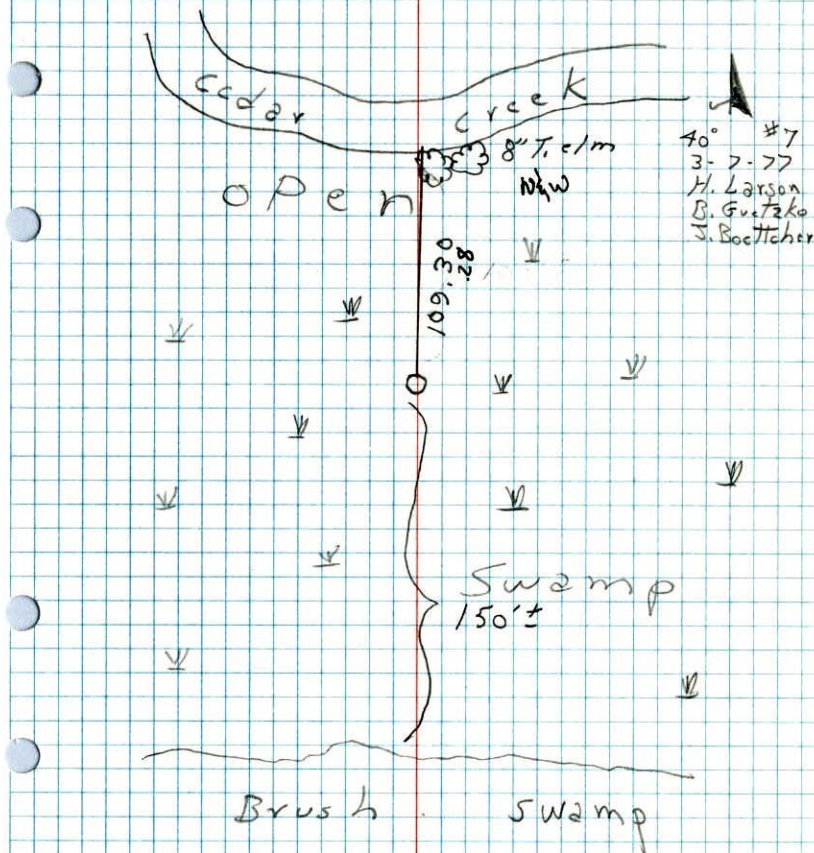 Cedar Creek
8" T. elm
N&W
40° #7
3-7-77
H. Larson
B. Guetzko
J. Boettcher
open
109.30
.28
Swamp
150'±
Brush Swamp